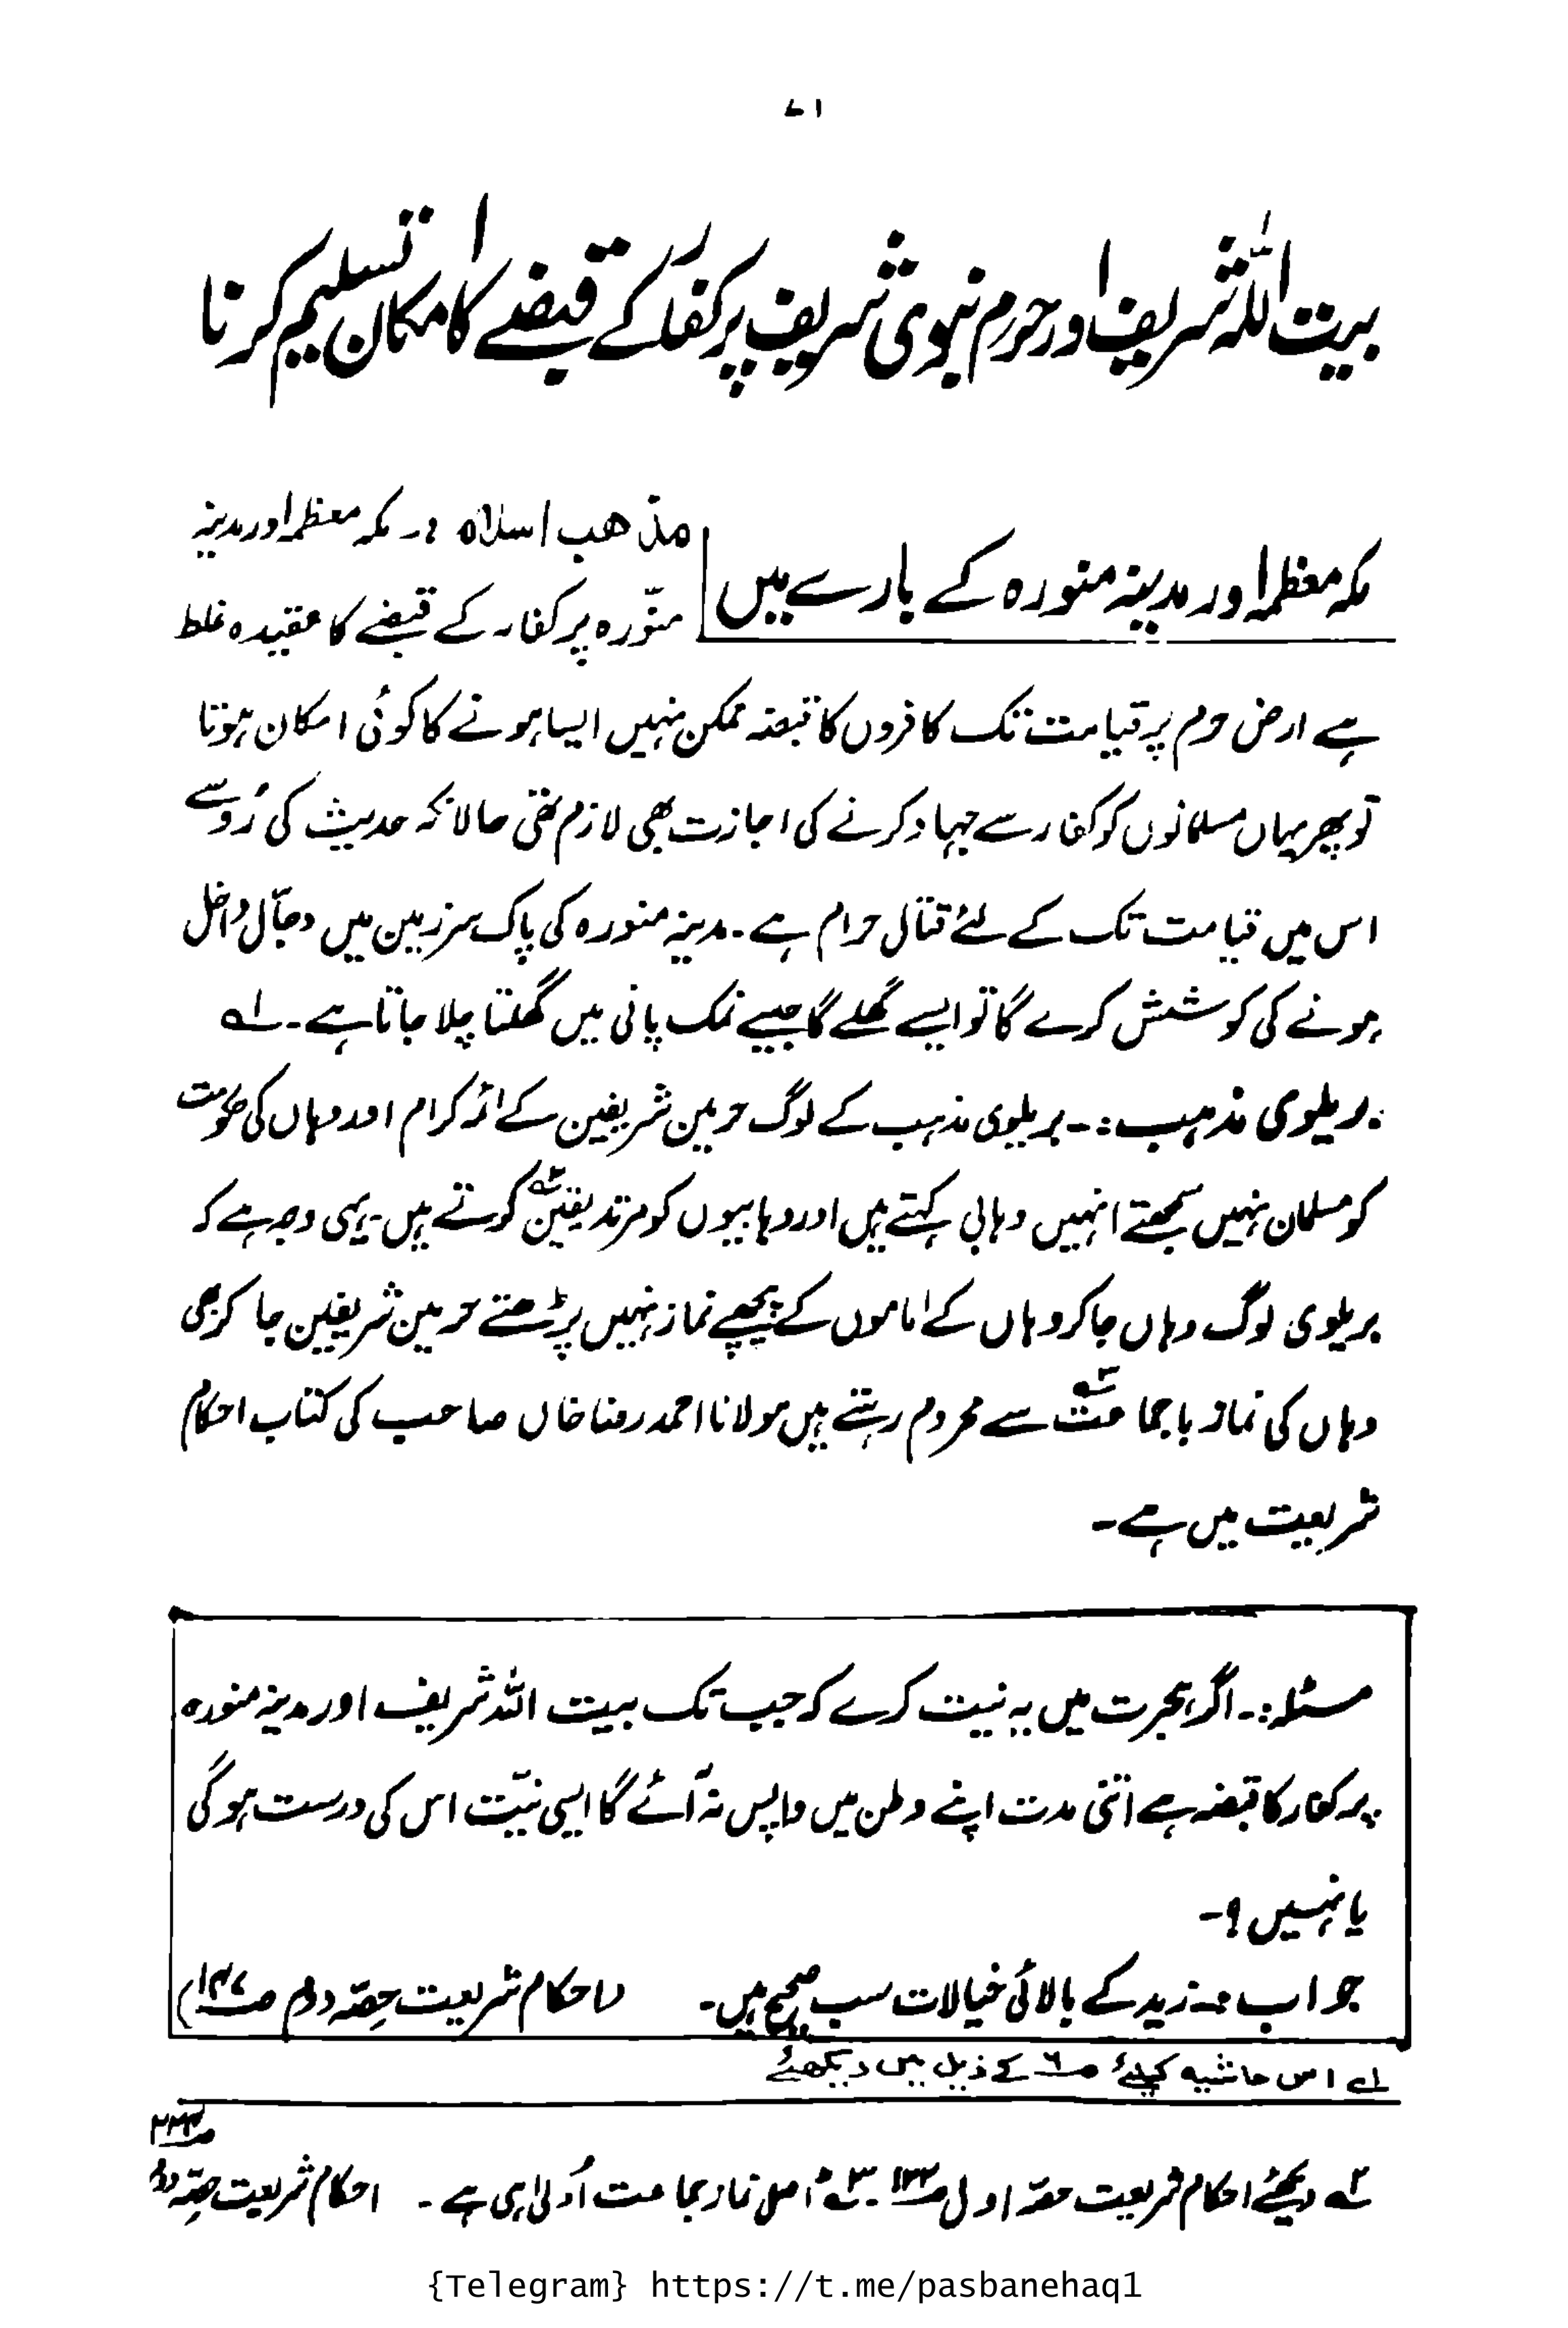 ۷۱
بیت اللہ شریف اور حرم نبوی شریف پر کفار کے قبضے کا امکان تسلیم کرنا
مکہ معظمہ اور مدینہ منورہ کے بارے میں
مذھب اسلام :۔ مکہ معظمہ اور مدینہ
منّورہ پر کفار کے قبضے کا عقیدہ غلط
ہے ارض حرم پر قیامت تک کافروں کا قبضہ ممکن نہیں ایسا ہونے کا کوئی امکان ہوتا
تو پھر یہاں مسلمانوں کو کفار سے جہاد کرنے کی اجازت بھی لازم تھی حالانکہ حدیث کی رُو سے
اس میں قیامت تک کے لئے قتال حرام ہے۔ مدینہ منورہ کی پاک سرزمین میں دجّال داخل
ہونے کی کوشش کرے گا تو ایسے گھلے گا جیسے نمک پانی میں گھلتا چلا جاتا ہے۔ ۱ہ
بریلوی مذہب :۔ بریلوی مذہب کے لوگ حرمین شریفین کے ائمہ کرام اور وہاں کی حکومت
کو مسلمان نہیں سمجھتے انہیں وہابی کہتے ہیں اور وہابیوں کو مرتد یقین ۲ہ کرتے ہیں۔ یہی وجہ ہے کہ
بریلوی لوگ وہاں جا کر وہاں کے اماموں کے پیچھے نماز نہیں پڑھتے حرمین شریفین جا کر بھی
وہاں کی نماز باجماعت ۳ہ سے محروم رہتے ہیں مولانا احمد رضا خاں صاحب کی کتاب احکام
شریعت میں ہے۔
مسئلہ :۔ اگر ہجرت میں یہ نیت کرے کہ جب تک بیت اللہ شریف اور مدینہ منورہ
پر کفار کا قبضہ ہے اتنی مدت اپنے وطن میں واپس نہ آئے گا ایسی نیّت اس کی درست ہو گی
یا نہیں ؟۔
جواب ۔۔ زید کے بالائی خیالات سب صحیح ہیں۔ (احکام شریعت حصّہ دوم ص۱۴۷)
۱ے اس حاشیہ کیلئے ص۶ کے ذیل میں دیکھئے
۲ہ دیکھئے احکام شریعت حصّہ اول ص۱۲۲ ۔ ۳ہ اصل نماز بجماعت اُولیٰ ہی ہے ۔ احکام شریعت حصّہ دوم
{Telegram} https://t.me/pasbanehaq1